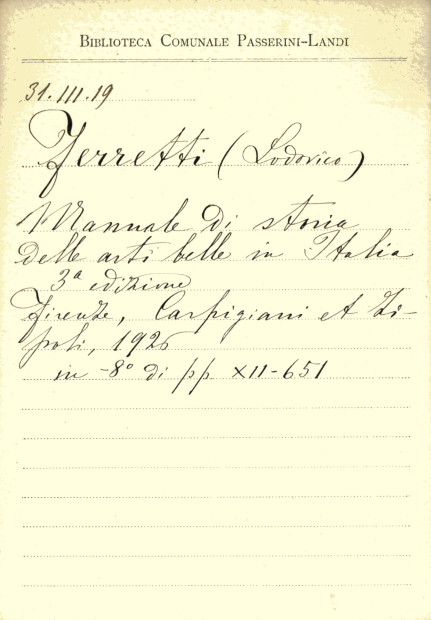 BIBLIOTECA COMUNALE PASSERINI-LANDI
31.III.19
Ferretti (Lodovico)
Manuale di storia
delle arti belle in Italia
3ª edizione
Firenze, Carpigiani et Zi-
poli, 1926
in -8° di pp. XII-651